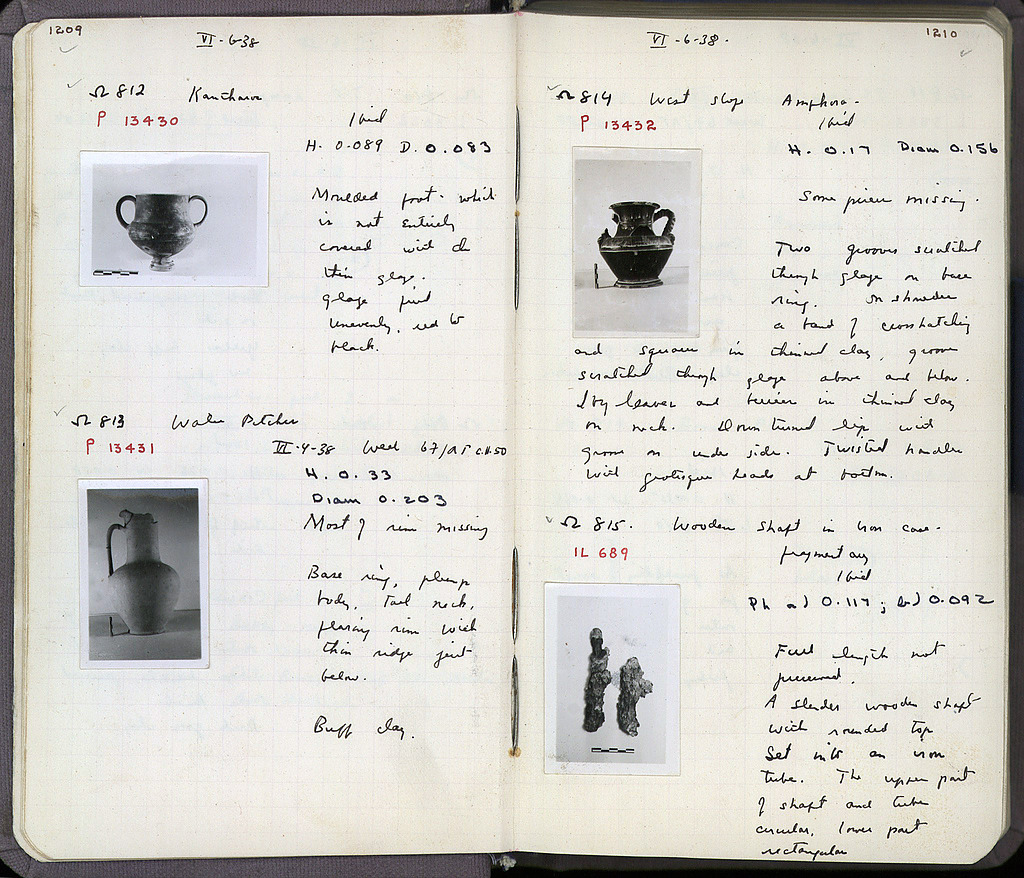 1209
VI-6-38
Ω 812 Kantharos
P 13430
Ibid
H. 0.089 D. 0.083
Moulded foot. which
is not entirely
covered with the
thin glaze.
glaze fired
unevenly, red to
black.
Ω 813 Water Pitcher
P 13431
VI-4-38 Well 67/
H. 0.33
Diam 0.203
Most of rim missing
Base ring, plump
body. Tall neck,
flaring rim with
thin ridge just
below.
Buff clay.
1210
VI-6-38.
Ω 814 West slope Amphora.
P 13432
Ibid
H. 0.17 Diam 0.156
Some pieces missing.
Two grooves scratched
through glaze on base
ring. On shoulder
a band of crosshatching
and squares in thinned clay, grooves
scratched through glaze above and below.
Ivy leaves and berries in thinned clay
on neck. Down turned lip with
groove on under side. Twisted handles
with grotesque heads at bottom.
Ω 815. Wooden shaft in iron case.
IL 689
fragmentary
Ibid
PH a) 0.117; b) 0.092
Full length not
preserved.
A slender wooden shaft
with rounded top
set into an iron
tube. The upper part
of shaft and tube
circular, lower part
rectangular